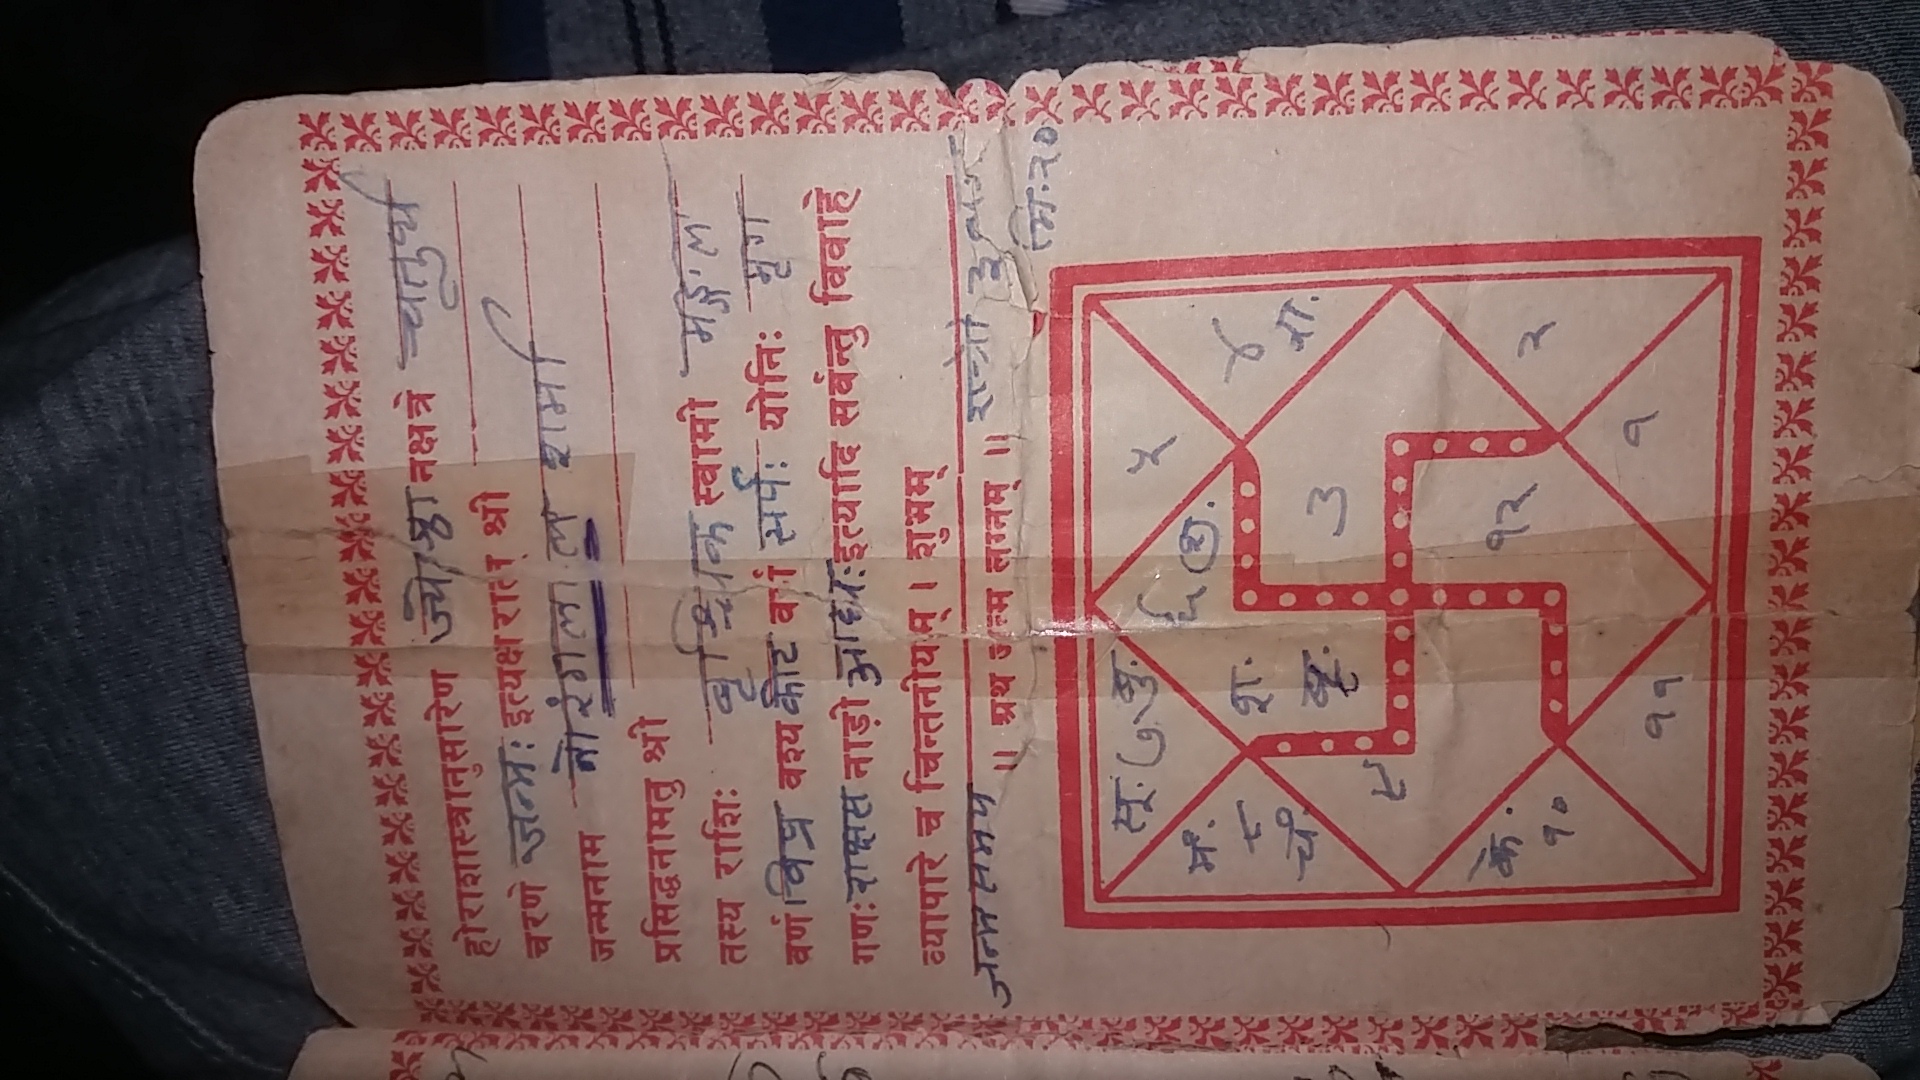 होराशास्त्रानुसारेण ज्येष्ठा नक्षत्रे चतुर्थ
चरणे जन्म: इत्यक्षरात् श्री
जन्मनाम नोरंगलाल शर्मा
प्रसिद्धनामतु श्री
तस्य राशिः वृश्चिक स्वामी मङ्गल
वर्ण विप्र वश्य कीट वर्ग सर्पः योनिः मृग
गणः राक्षस नाड़ी आद्य इत्यादि सर्वन्तु विवाहे
व्यापारे च चिन्तनीयम् । शुभम्
जन्म समय ॥ अथ जन्म लग्नम् ॥ रात्रो
मि: २०
सू. ७ शु. ५
मं. ८ चं. शु. बृ. ६ बु. ३ ४ रा.
९
के. १० १२ २
११ १